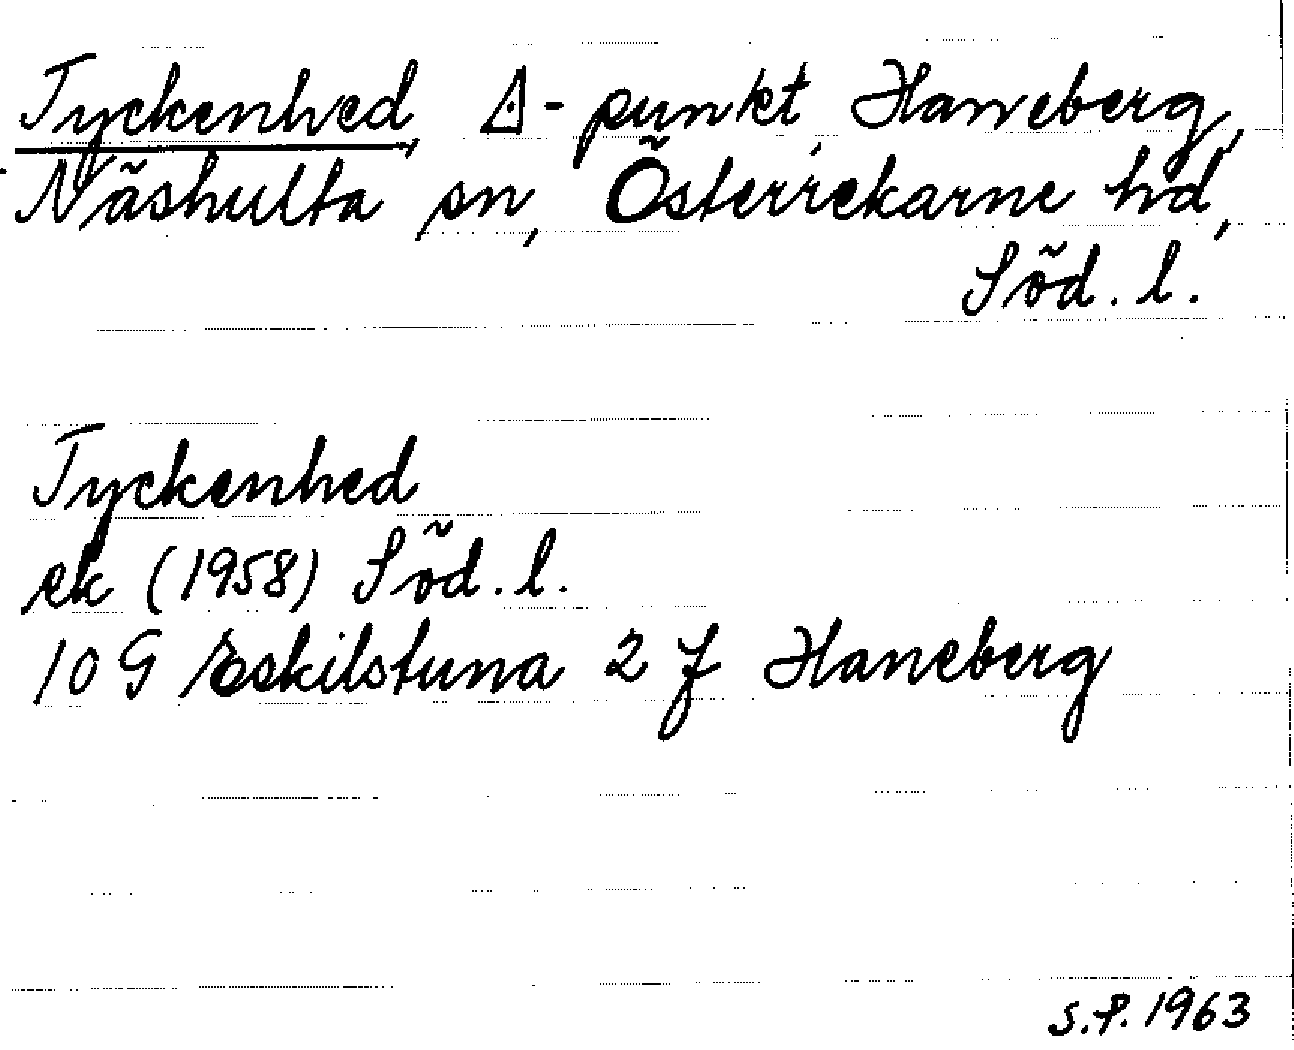 Tyckenhed, ◬-punkt, Haneberg,
Näshulta sn, Österrekarne hd,
Söd. l.
Tyckenhed
ek (1958) Söd. l.
10 G Eskilstuna 2 f Haneberg
S.P. 1963